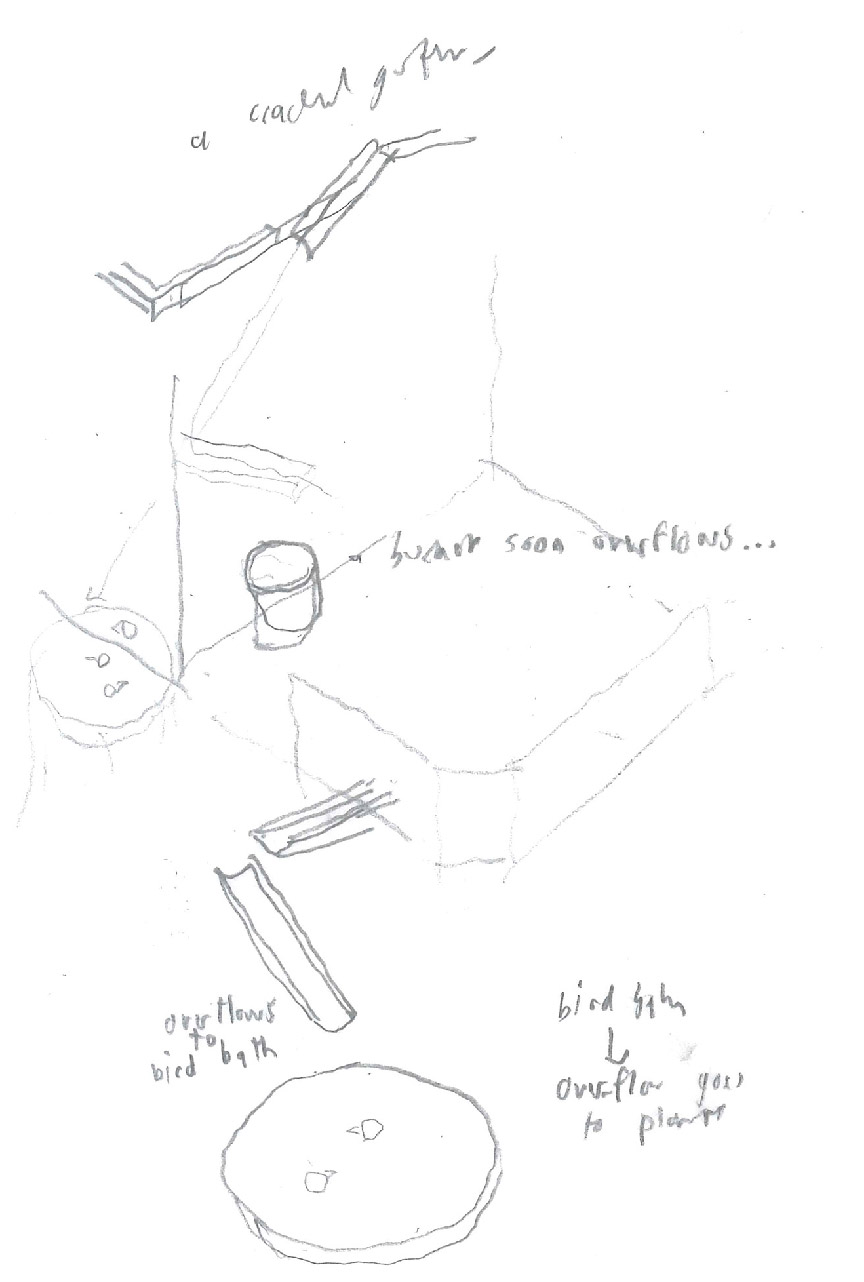 a cracked gutter
bucket soon overflows...
overflows
to
bird bath
bird bath
overflow goes
to plants